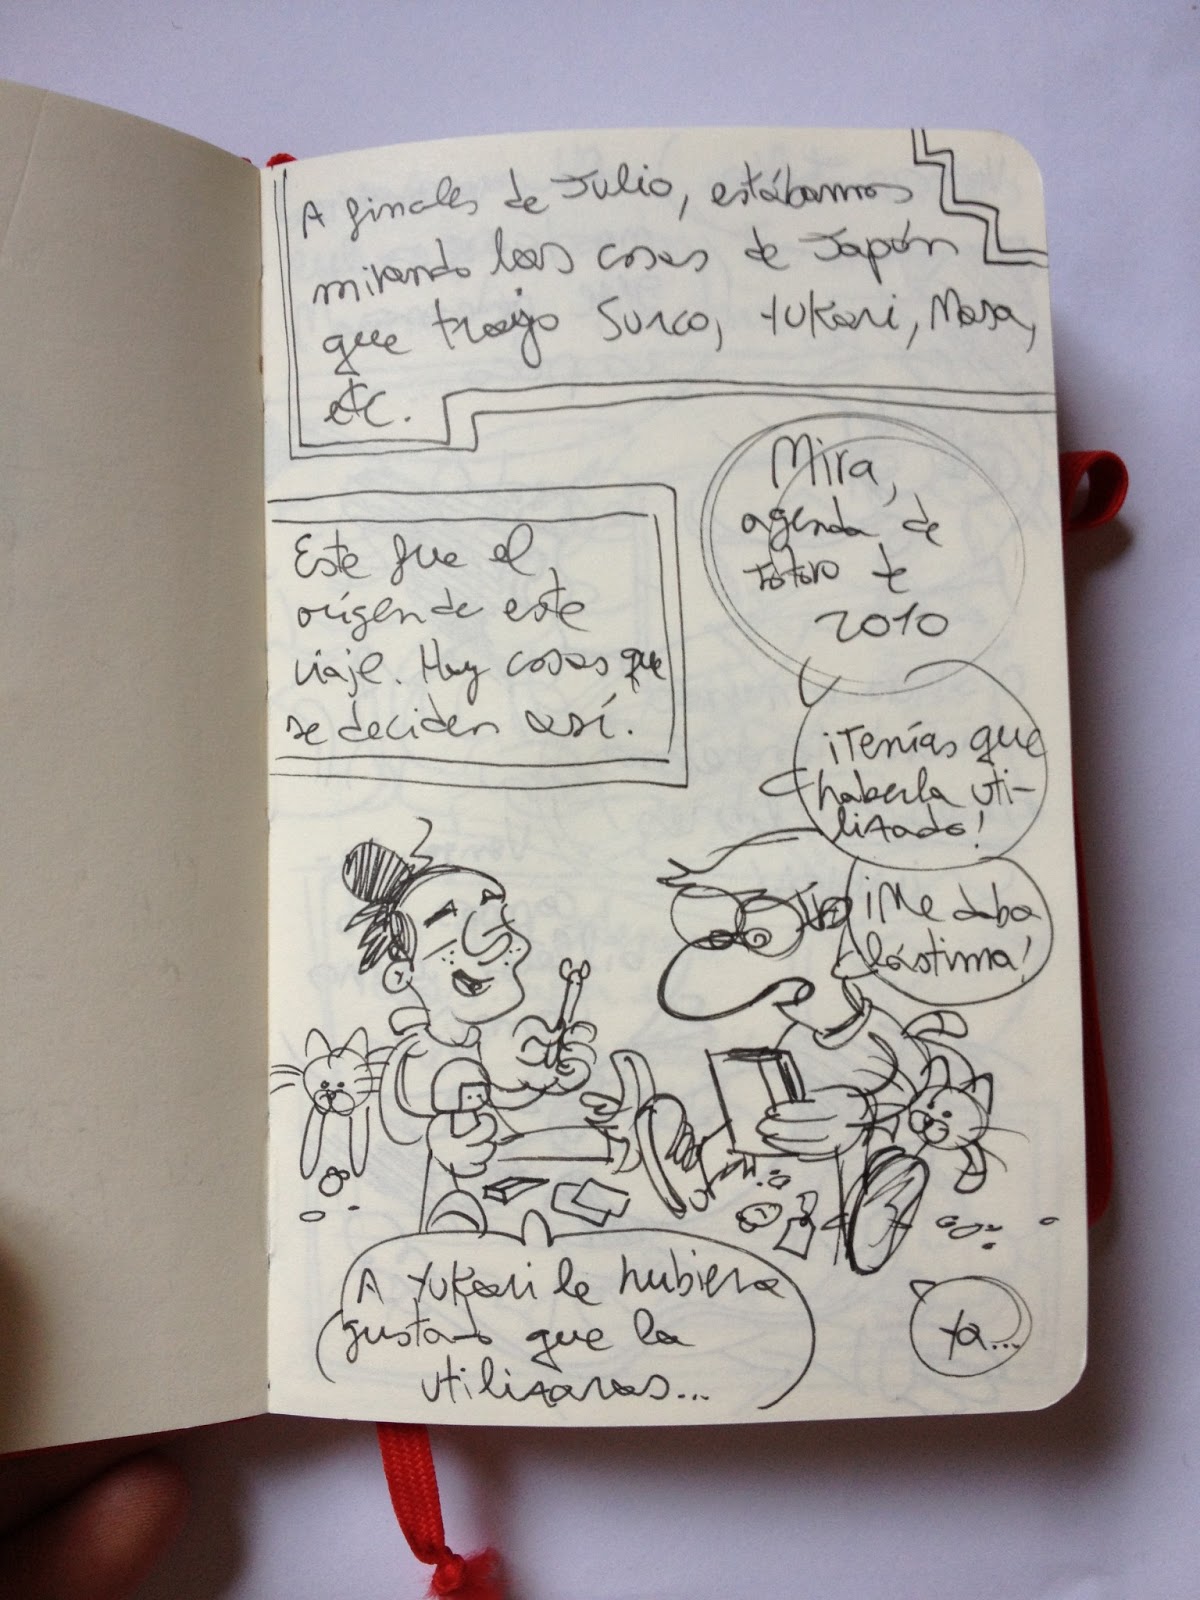 A finales de Julio, estábamos
mirando las cosas de Japón
que trajo Surco, Yukari, Masa,
etc.
Este fue el
origen de este
viaje. Hay cosas que
se deciden así.
Mira,
agenda de
Totoro de
2010
¡Tenías que
haberla uti-
lizado!
¡Me daba
lástima!
A Yukari le hubiera
gustado que la
utilizaras...
Ya...